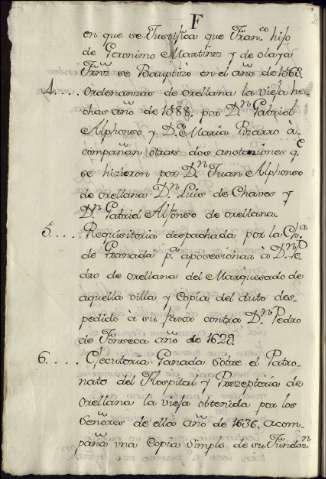 F
en que se Justifica que Fran.co hijo
de Geronimo Martinez y de olaya
Frnz se Bauptizo en el año de 1668.
4.... ordenanzas de orellana la vieja he-
chas año de 1588. por D.n Gabriel
Alphonso y D.ª Maria Pizarro a-
compañan otras dos anotaciones q.e
se hizieron por D.n Juan Alphonso
de orellana D.n Luis de Chaves y
D.n Gabriel Alfonso de orellana.
5.... Requisitoria despachada por la Ch.ria
de Granada p.a aposesionar à D.n Pe-
dro de orellana del Marquesado de
aquella villa y copia del auto des-
pedido à su favor contra D.n Pedro
de Fonseca año de 1628.
6.... Ejecutoria Ganada sobre el Patro-
nato del Hospital y Prezeptoria de
orellana la vieja obtenida por los
Señores de ella año de 1636, acom-
paña una Copia simple de su Fundon